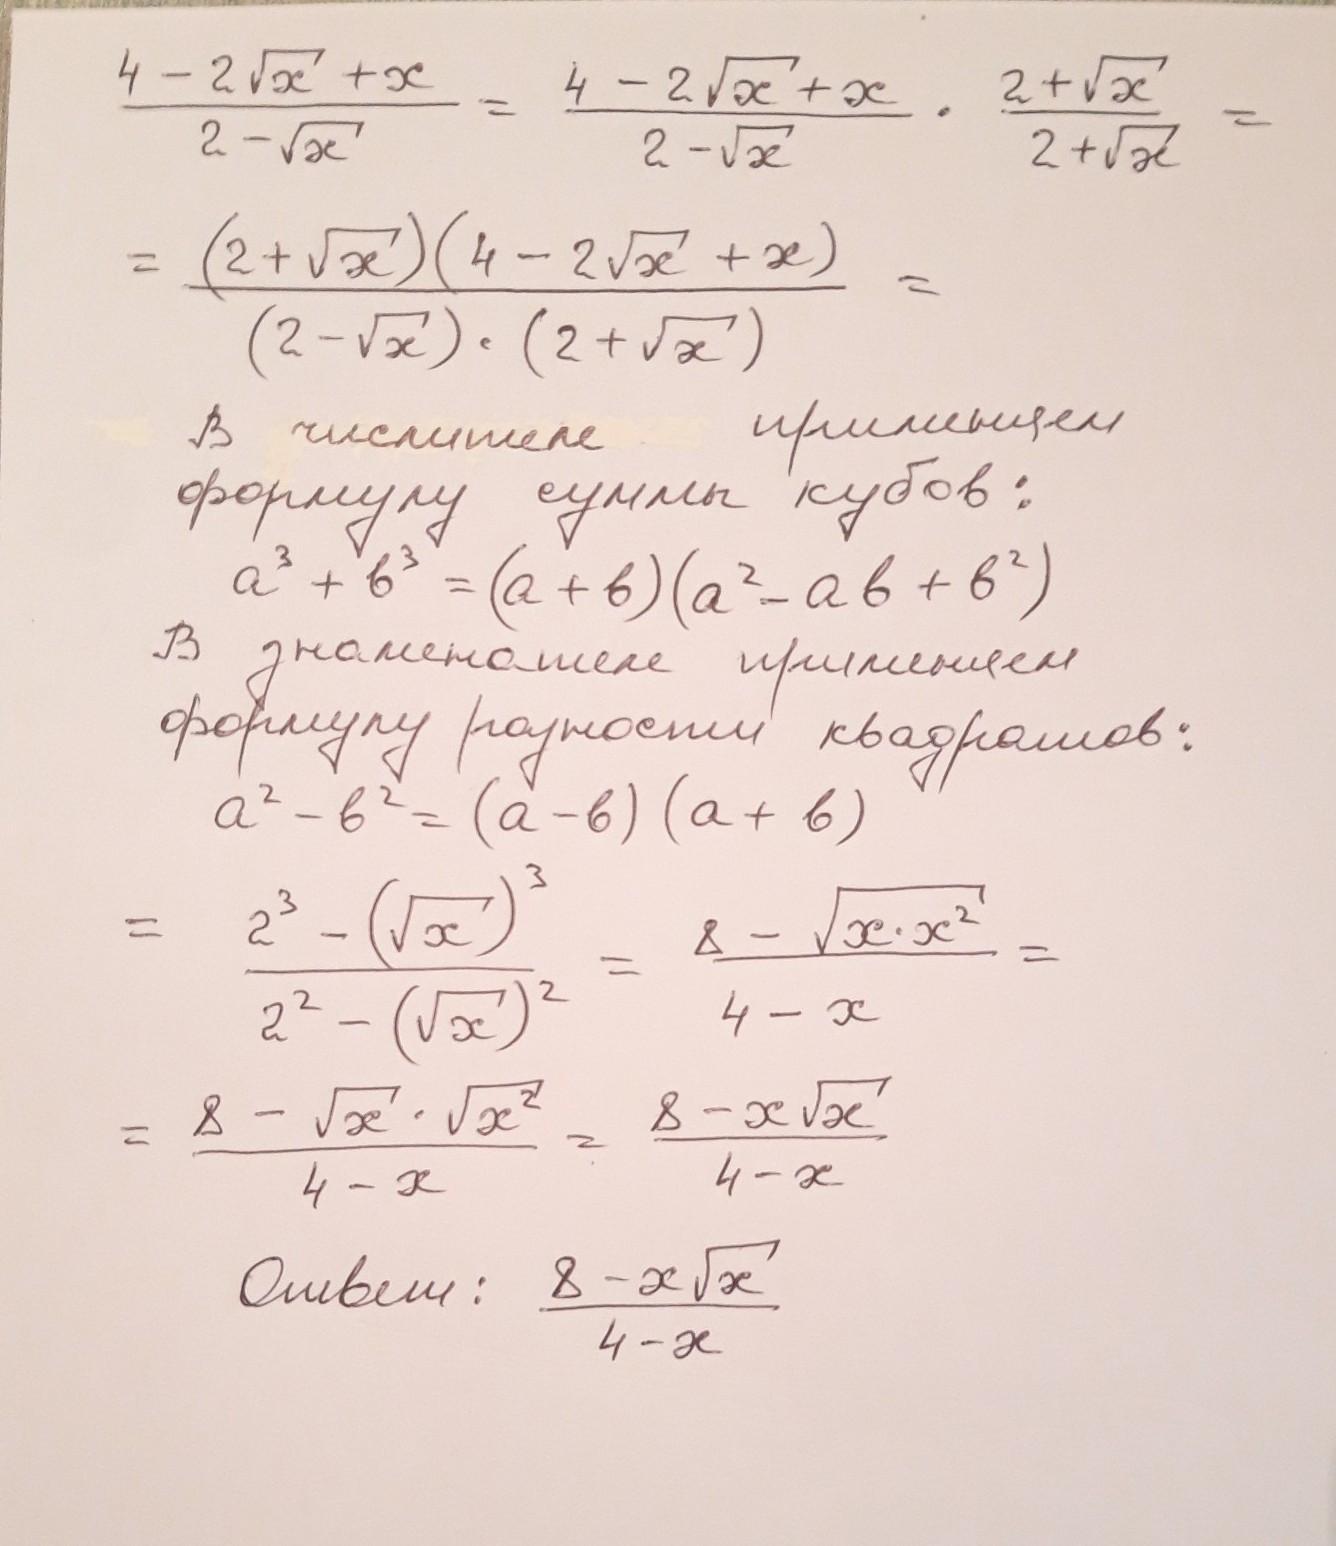 (4 - 2√x + x)/(2 - √x) = (4 - 2√x + x)/(2 - √x) · (2 + √x)/(2 + √x) =
= ((2 + √x)(4 - 2√x + x))/((2 - √x) · (2 + √x)) =
В числителе применяем
формулу суммы кубов:
a³ + b³ = (a + b)(a² - ab + b²)
В знаменателе применяем
формулу разности квадратов:
a² - b² = (a - b)(a + b)
= (2³ - (√x)³)/(2² - (√x)²) = (8 - √(x·x²))/(4 - x) =
= (8 - √x · √x²)/(4 - x) = (8 - x√x)/(4 - x)
Ответ: (8 - x√x)/(4 - x)